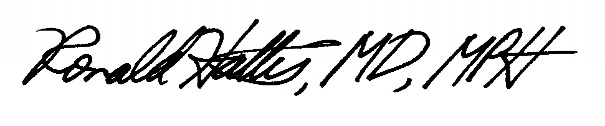 Ronald Hattis, MD, MPH